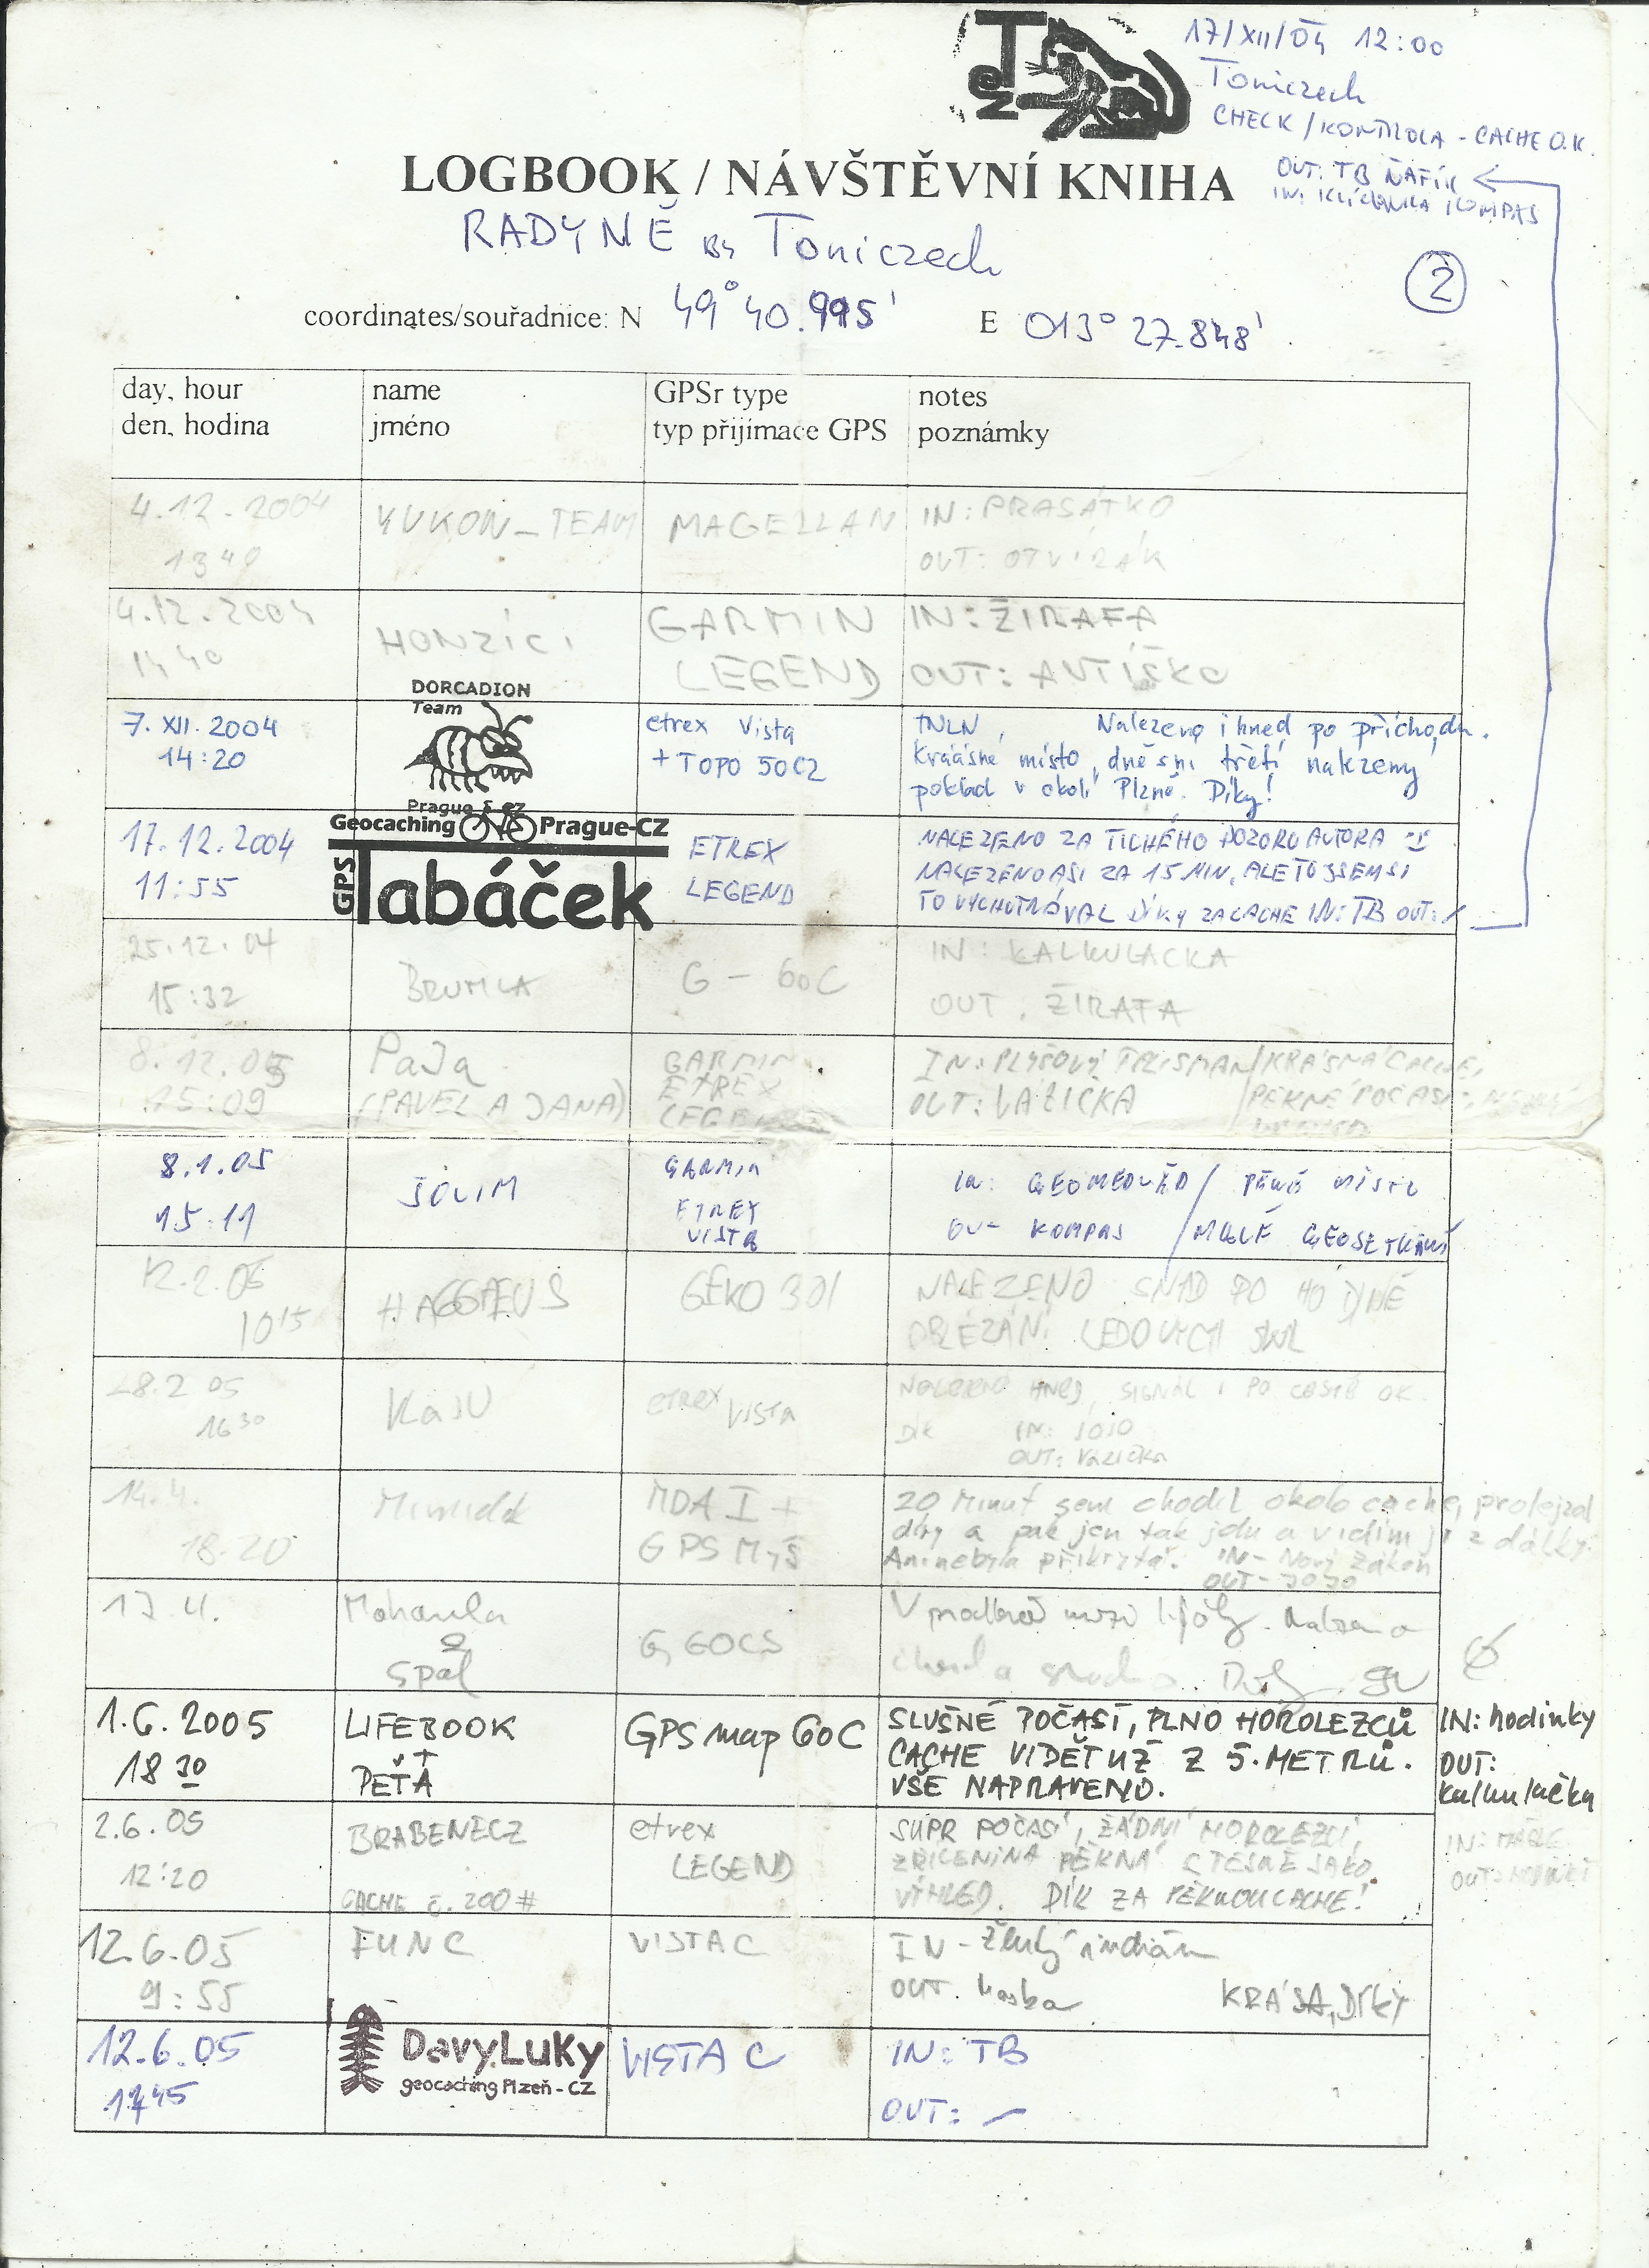 17/XII/04 12:00
Toniczech
CHECK / KONTROLA - CACHE O.K.
OUT: TB ŇAFÍK
IN: KLÍČENKA KOMPAS
LOGBOOK / NÁVŠTĚVNÍ KNIHA
RADYNĚ by Toniczech
2
coordinates/souřadnice: N 49° 40.995' E 013° 27.848'
day, hour name GPSr type notes
den, hodina jméno typ přijímace GPS poznámky
4.12.2004 YUKON_TEAM MAGELLAN IN: PRASÁTKO
13 40 OUT: OTVÍRÁK
4.12.2004 HONZÍCI GARMIN IN: ŽIRAFA
14 40 LEGEND OUT: AUTÍČKO
DORCADION
Team
7. XII. 2004 etrex Vista TNLN, Nalezeno ihned po příchodu.
14:20 + TOPO 50CZ Kráásné místo, dnes mi třetí nalezený
poklad v okolí Plzně. Díky!
Prague
Geocaching Prague-CZ
17.12.2004 GPS Tabáček ETREX NALEZENO ZA TICHÉHO DOZORU AUTORA
11:55 LEGEND NALEZENO ASI ZA 15 MIN, ALE TO JSEM SI
TO VYCHUTNÁVAL DÍKY ZA CACHE IN: TB OUT: /
25.12.04 BRUMLA G - 60C IN: KALKULACKA
15:32 OUT: ŽIRAFA
8.12.05 PaJa GARMIN IN: PLYŠOVÝ TALISMAN / KRÁSNÁ CACHE,
15:09 (PAVEL A JANA) ETREX OUT: VAZIČKA / PĚKNÉ POČASÍ
LEGEND
8.1.05 JOLIM GARMIN IN: GEOMEDVĚD / PĚKNÉ MÍSTO
15:11 ETREX OUT KOMPAS / MILÉ GEOSETKÁNÍ
VISTA
12.2.05 HAGGAEUS GEKO 301 NALEZENO SNAD PO HODINĚ
10 15 OBLÉZÁNÍ LEDOVÝCH SKAL
28.2 05 KaJU etrex VISTA NALEZENO HNED, SIGNÁL I PO CESTĚ OK.
16 30 DÍK IN: JOJO
OUT: Vazička
14.4. Mimidek MDA I + 20 Minut sem chodil okolo cache, prolejzal
18:20 GPS Myš díry a pak jen tak jdu a vidim ji z dálky.
Ani nebyla přikrytá. IN - Nový Zákon
OUT - JOJO
17.4. G 60CS
1.6.2005 LIFEBOOK GPSmap 60C SLUŠNÉ POČASÍ, PLNO HOROLEZCŮ IN: hodinky
18 30 + CACHE VIDĚT UŽ Z 5. METRŮ. OUT:
PEŤA VŠE NAPRAVENO. kalkulačka
2.6.05 BRABENECZ etrex SUPR POČASÍ, ŽÁDNÍ HOROLEZCI,
12:20 LEGEND ZŘÍCENINA PĚKNÁ STEJNĚ JAKO OUT: HODINKY
CACHE č. 200# VÝHLED. DÍK ZA PĚKNOU CACHE!
12.6.05 FUNC VISTA C IN - Žlutý indián
9:55 OUT. maska KRÁSA, DÍKY
12.6.05 DavyLuKy VISTA C IN: TB
17 45 geocaching Plzeň - CZ OUT: /